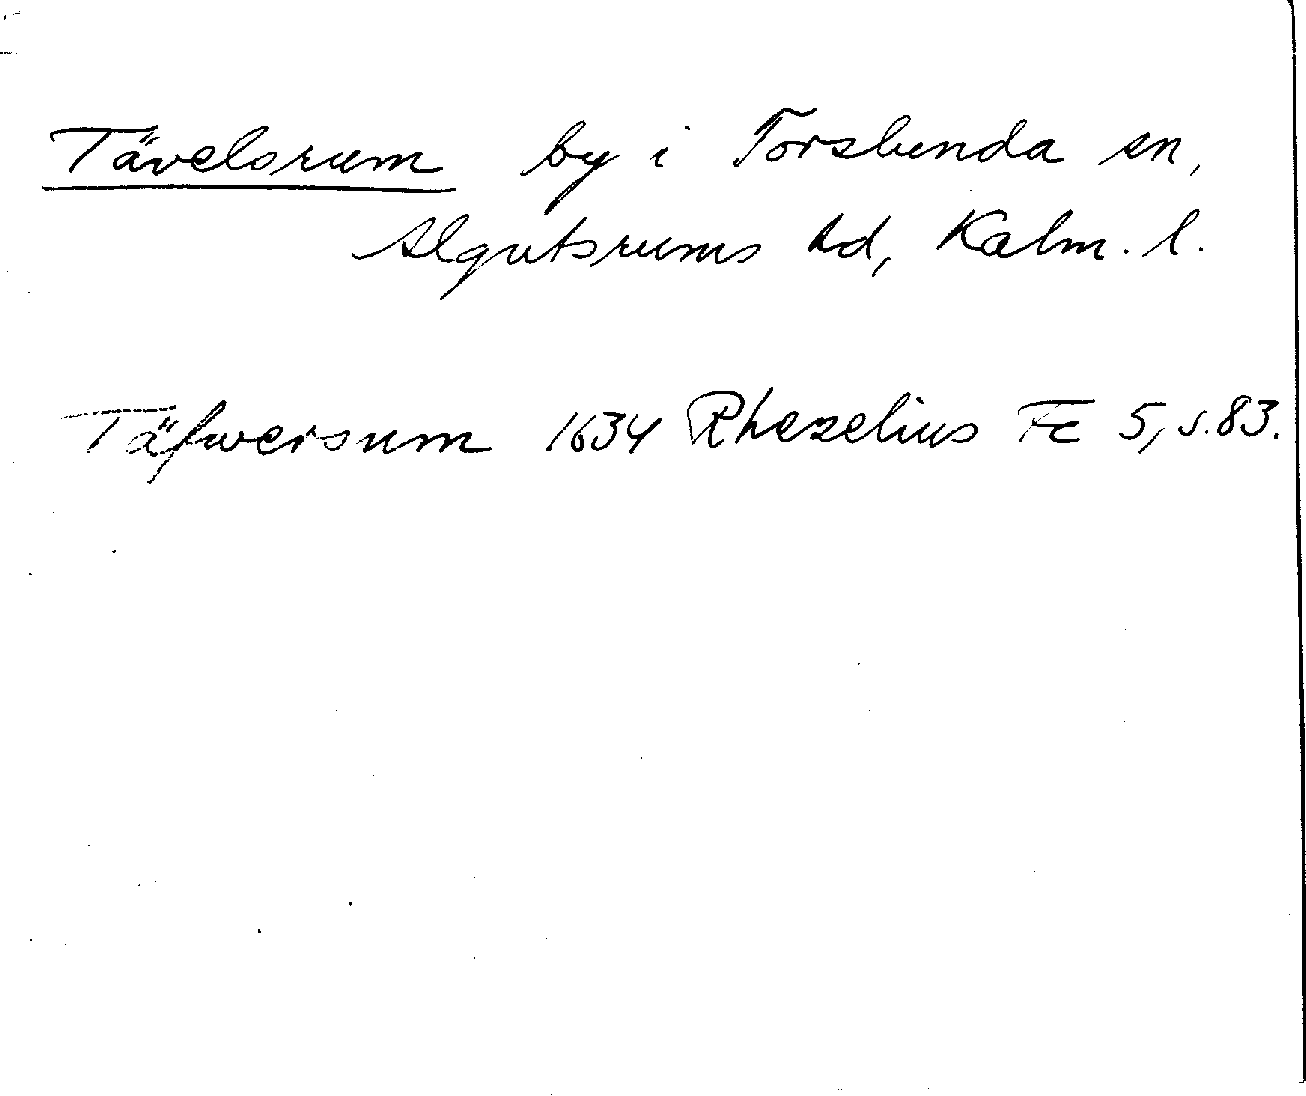 Tävelsrum by i Torslunda sn,
Algutsrums hd, Kalm. l.
Täfwersum 1634 Rhezelius Fc 5, s. 83.